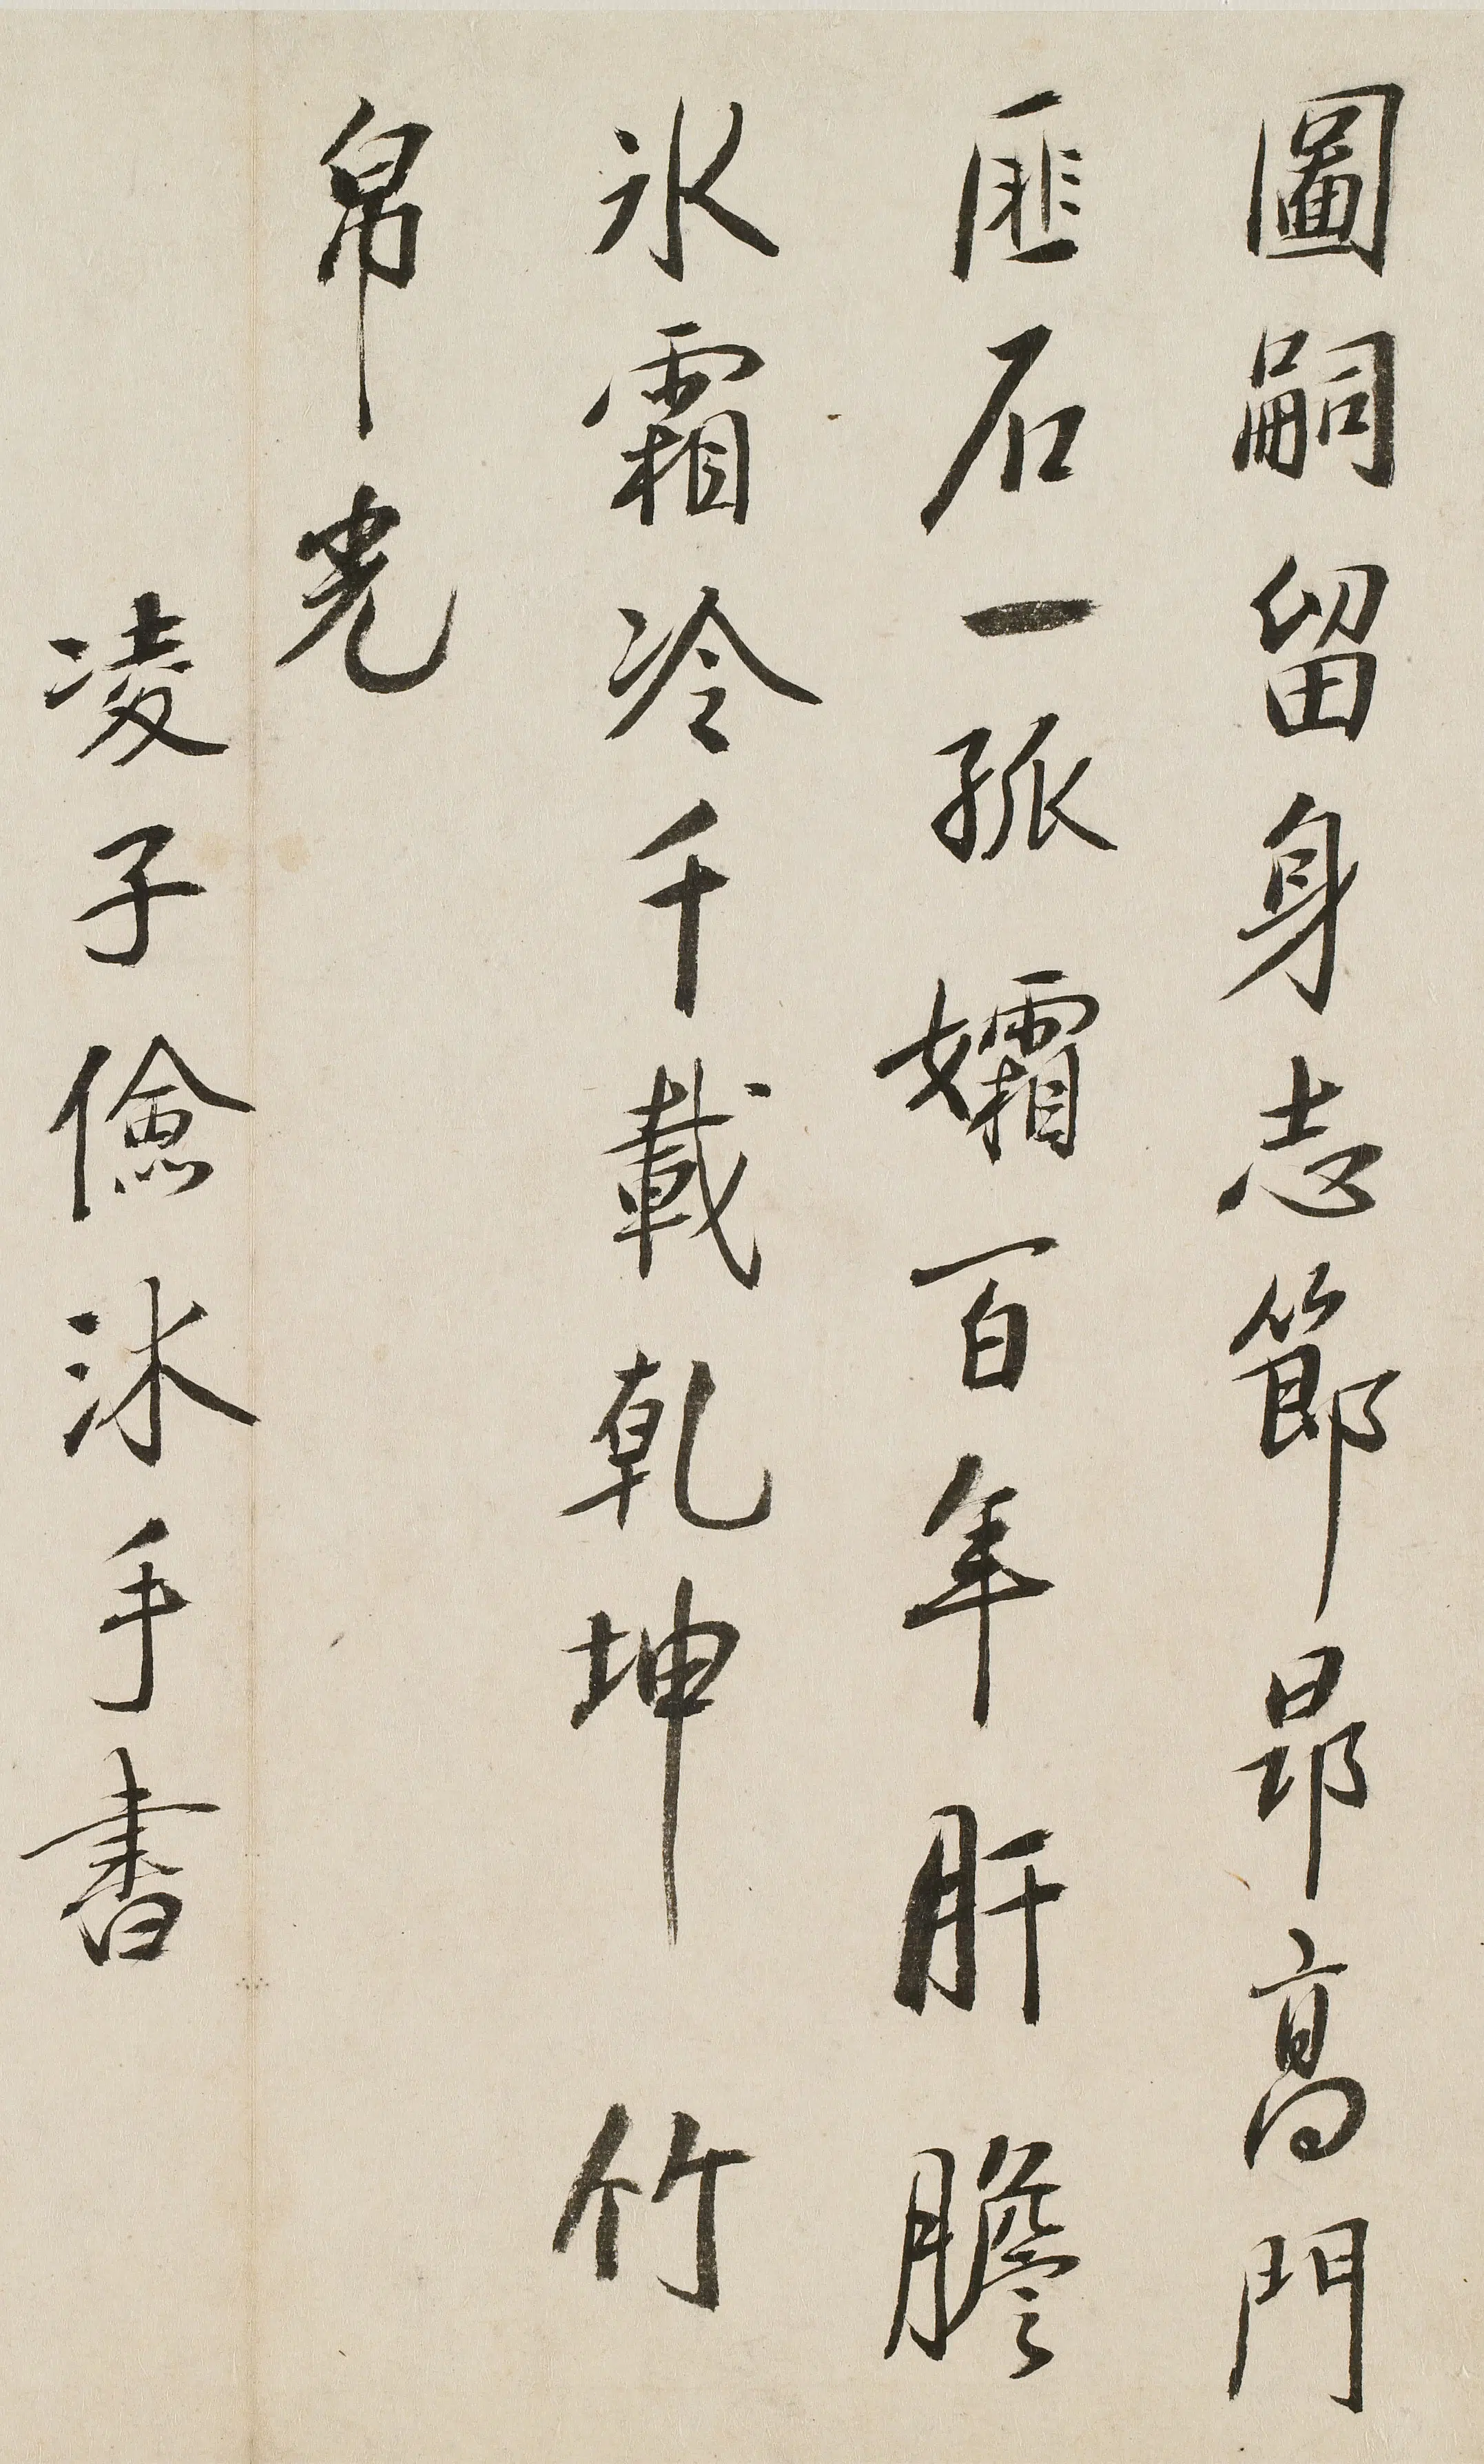 圖嗣留身志節昂高門
匪石一孤孀百年肝膽
氷霜冷千載乾坤竹
帛光
凌子儉沐手書